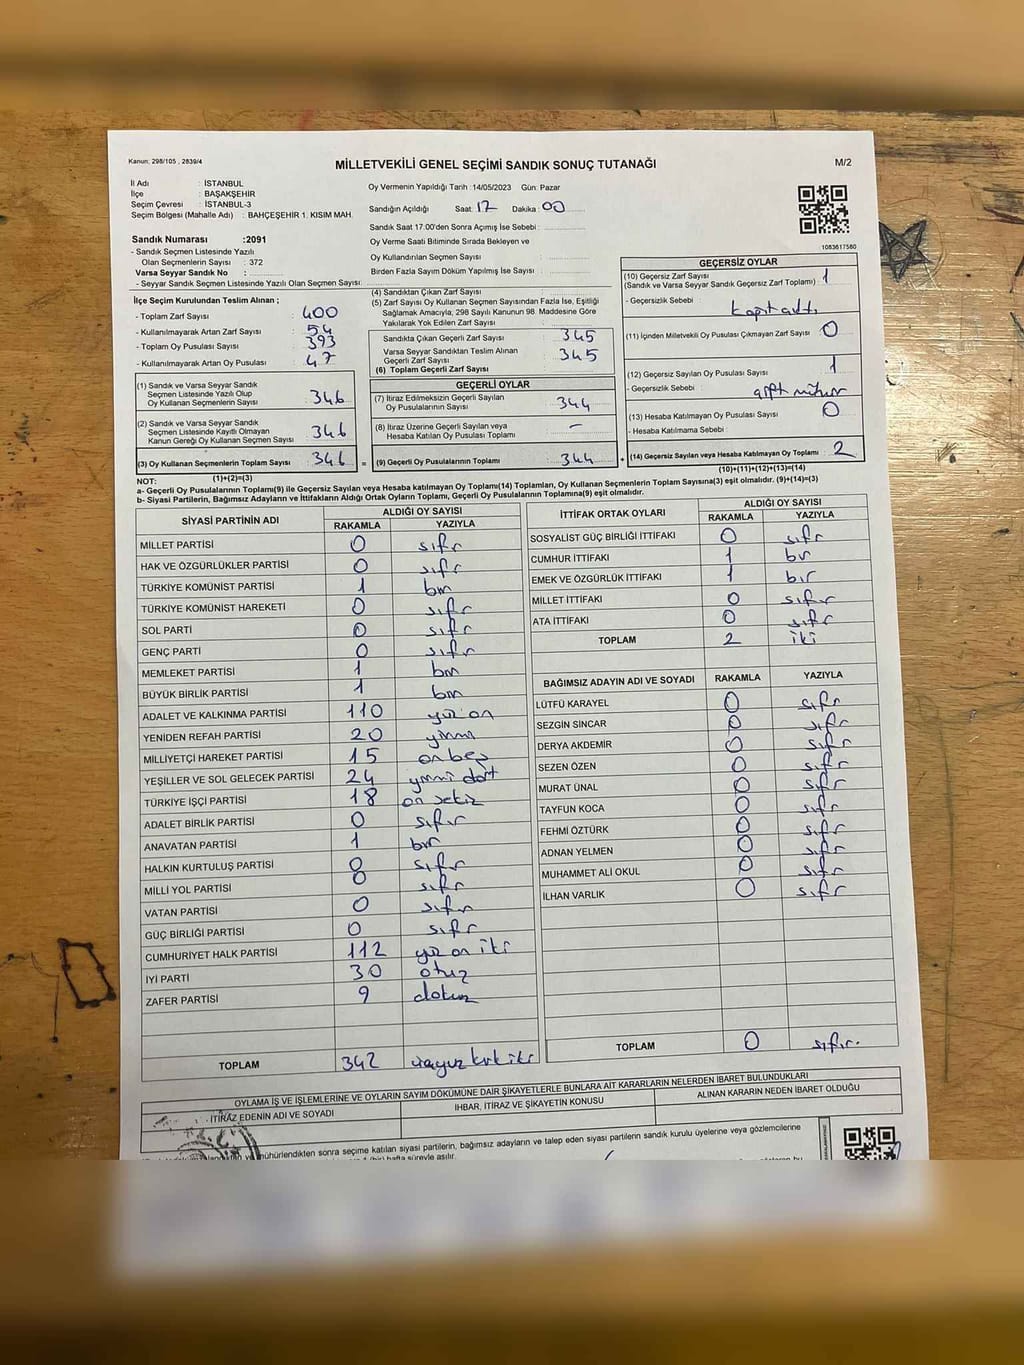 Kanun: 298/105 , 2839/4
MİLLETVEKİLİ GENEL SEÇİMİ SANDIK SONUÇ TUTANAĞI
M/2
İl Adı : İSTANBUL
İlçe : BAŞAKŞEHİR
Seçim Çevresi : İSTANBUL-3
Seçim Bölgesi (Mahalle Adı) : BAHÇEŞEHİR 1. KISIM MAH.
Sandık Numarası :2091
- Sandık Seçmen Listesinde Yazılı
Olan Seçmenlerin Sayısı : 372
Varsa Seyyar Sandık No :
- Seyyar Sandık Seçmen Listesinde Yazılı Olan Seçmen Sayısı:
Oy Vermenin Yapıldığı Tarih :14/05/2023 Gün: Pazar
Sandığın Açıldığı Saat: 17 Dakika: 00
Sandık Saat 17.00'den Sonra Açımış İse Sebebi :
Oy Verme Saati Bitiminde Sırada Bekleyen ve
Oy Kullandırılan Seçmen Sayısı :
Birden Fazla Sayım Döküm Yapılmış İse Sayısı :
1083617580
İlçe Seçim Kurulundan Teslim Alınan ;
- Toplam Zarf Sayısı : 400
- Kullanılmayarak Artan Zarf Sayısı : 54
- Toplam Oy Pusulası Sayısı : 393
- Kullanılmayarak Artan Oy Pusulası : 47
(1) Sandık ve Varsa Seyyar Sandık
Seçmen Listesinde Yazılı Olup
Oy Kullanan Seçmenlerin Sayısı : 346
(2) Sandık ve Varsa Seyyar Sandık
Seçmen Listesinde Kayıtlı Olmayan
Kanun Gereği Oy Kullanan Seçmen Sayısı : 346
(3) Oy Kullanan Seçmenlerin Toplam Sayısı : 346
(1)+(2)=(3)
(4) Sandıktan Çıkan Zarf Sayısı :
(5) Zarf Sayısı Oy Kullanan Seçmen Sayısından Fazla İse, Eşitliği
Sağlamak Amacıyla, 298 Sayılı Kanunun 98. Maddesine Göre
Yakılarak Yok Edilen Zarf Sayısı :
Sandıkta Çıkan Geçerli Zarf Sayısı : 345
Varsa Seyyar Sandıktan Teslim Alınan
Geçerli Zarf Sayısı : 345
(6) Toplam Geçerli Zarf Sayısı :
GEÇERLİ OYLAR
(7) İtiraz Edilmeksizin Geçerli Sayılan
Oy Pusulalarının Sayısı : 344
(8) İtiraz Üzerine Geçerli Sayılan veya
Hesaba Katılan Oy Pusulaları Toplamı : -
= (9) Geçerli Oy Pusulalarının Toplamı : 344
GEÇERSİZ OYLAR
(10) Geçersiz Zarf Sayısı : 1
(Sandık ve Varsa Seyyar Sandık Geçersiz Zarf Toplamı)
- Geçersizlik Sebebi :
(11) İçinden Milletvekili Oy Pusulası Çıkmayan Zarf Sayısı : 0
(12) Geçersiz Sayılan Oy Pusulası Sayısı : 1
- Geçersizlik Sebebi :
(13) Hesaba Katılmayan Oy Pusulası Sayısı : 0
- Hesaba Katılmama Sebebi :
+ (14) Geçersiz Sayılan veya Hesaba Katılmayan Oy Toplamı : 2
(10)+(11)+(12)+(13)=(14)
NOT:
a- Geçerli Oy Pusulalarının Toplamı(9) ile Geçersiz Sayılan veya Hesaba Katılmayan Oy Toplamı(14) Toplamları, Oy Kullanan Seçmenlerin Toplam Sayısına(3) eşit olmalıdır. (9)+(14)=(3)
b- Siyasi Partilerin, Bağımsız Adayların ve İttifakların Aldığı Ortak Oyların Toplamı, Geçerli Oy Pusulalarının Toplamına(9) eşit olmalıdır.
SİYASİ PARTİNİN ADI ALDIĞI OY SAYISI
RAKAMLA YAZIYLA
MİLLET PARTİSİ 0 sıfır
HAK VE ÖZGÜRLÜKLER PARTİSİ 0 sıfır
TÜRKİYE KOMÜNİST PARTİSİ 1 bir
TÜRKİYE KOMÜNİST HAREKETİ 0 sıfır
SOL PARTİ 0 sıfır
GENÇ PARTİ 0 sıfır
MEMLEKET PARTİSİ 1 bir
BÜYÜK BİRLİK PARTİSİ 1 bir
ADALET VE KALKINMA PARTİSİ 110 yüz on
YENİDEN REFAH PARTİSİ 20 yirmi
MİLLİYETÇİ HAREKET PARTİSİ 15 on beş
YEŞİLLER VE SOL GELECEK PARTİSİ 24 yirmi dört
TÜRKİYE İŞÇİ PARTİSİ 18 on sekiz
ADALET BİRLİK PARTİSİ 0 sıfır
ANAVATAN PARTİSİ 1 bir
HALKIN KURTULUŞ PARTİSİ 0 sıfır
MİLLİ YOL PARTİSİ 0 sıfır
VATAN PARTİSİ 0 sıfır
GÜÇ BİRLİĞİ PARTİSİ 0 sıfır
CUMHURİYET HALK PARTİSİ 112 yüz on iki
İYİ PARTİ 30 otuz
ZAFER PARTİSİ 9 dokuz
TOPLAM 342 üçyüz kırk iki
İTTİFAK ORTAK OYLARI ALDIĞI OY SAYISI
RAKAMLA YAZIYLA
SOSYALİST GÜÇ BİRLİĞİ İTTİFAKI 0 sıfır
CUMHUR İTTİFAKI 1 bir
EMEK VE ÖZGÜRLÜK İTTİFAKI 1 bir
MİLLET İTTİFAKI 0 sıfır
ATA İTTİFAKI 0 sıfır
TOPLAM 2 iki
BAĞIMSIZ ADAYIN ADI VE SOYADI RAKAMLA YAZIYLA
LÜTFÜ KARAYEL 0 sıfır
SEZGİN SİNCAR 0 sıfır
DERYA AKDEMİR 0 sıfır
SEZEN ÖZEN 0 sıfır
MURAT ÜNAL 0 sıfır
TAYFUN KOCA 0 sıfır
FEHMİ ÖZTÜRK 0 sıfır
ADNAN YELMEN 0 sıfır
MUHAMMET ALİ OKUL 0 sıfır
İLHAN VARLIK 0 sıfır
TOPLAM 0 sıfır.
OYLAMA İŞ VE İŞLEMLERİNE VE OYLARIN SAYIM DÖKÜMÜNE DAİR ŞİKAYETLERLE BUNLARA AİT KARARLARIN NELERDEN İBARET BULUNDUKLARI
İTİRAZ EDENİN ADI VE SOYADI İHBAR, İTİRAZ VE ŞİKAYETİN KONUSU ALINAN KARARIN NEDEN İBARET OLDUĞU
mühürlendikten sonra seçime katılan siyasi partilerin, bağımsız adayların ve talep eden siyasi partilerin sandık kurulu üyelerine veya gözlemcilerine